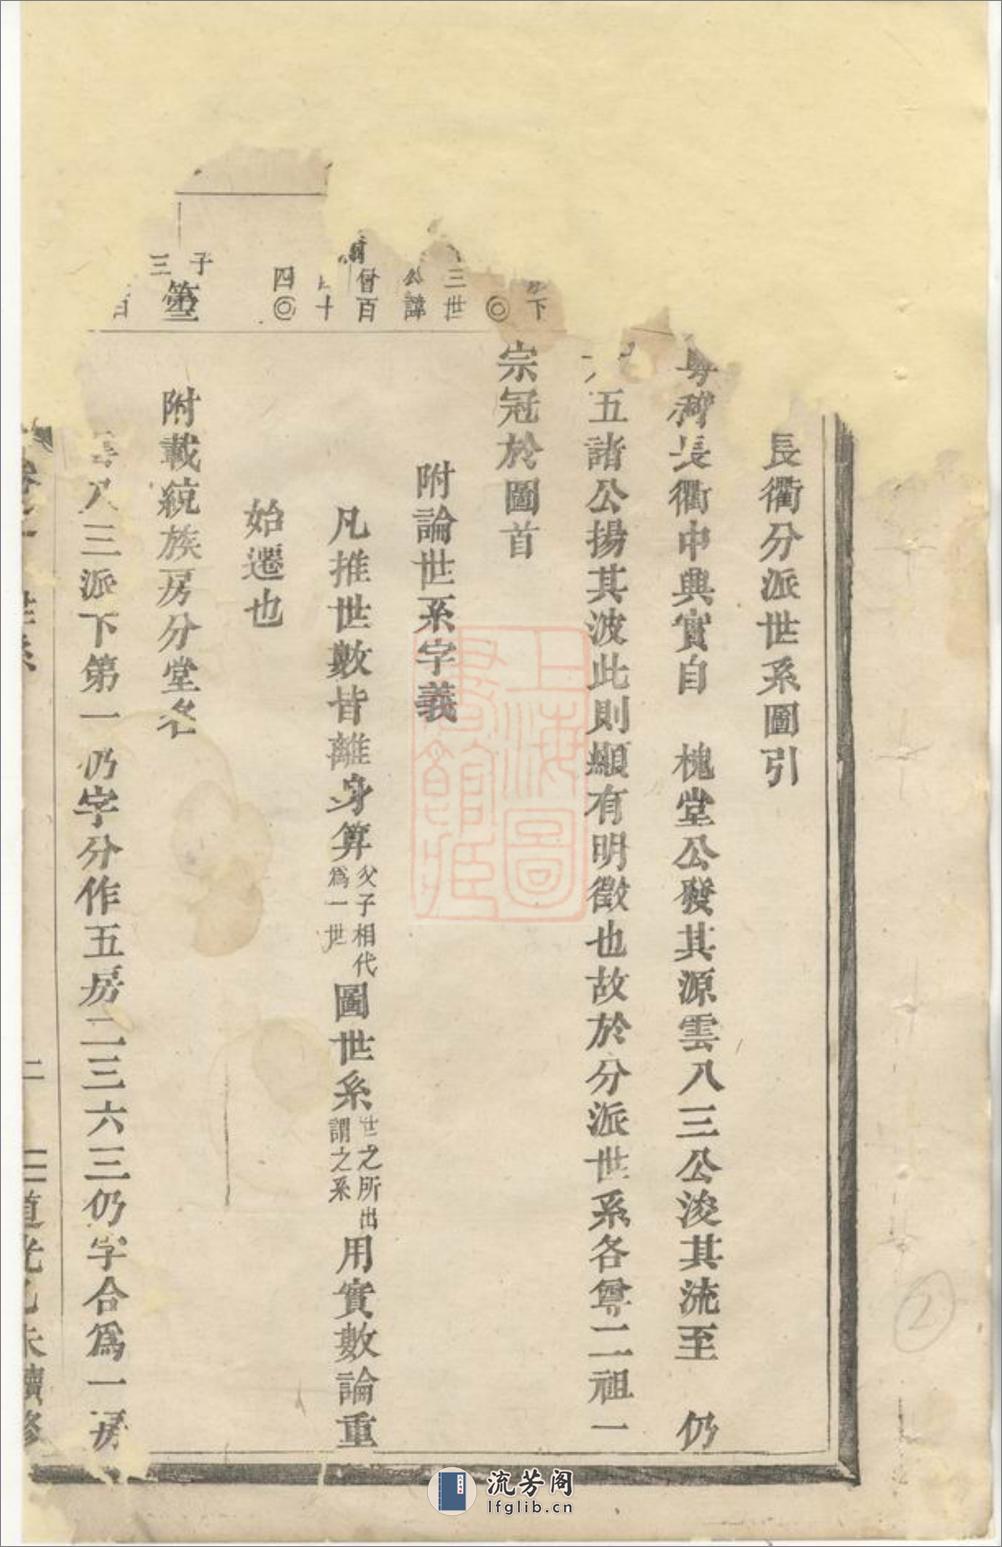 長衢分派世系圖引
長衢中興實自 槐堂公發其源雲八三公浚其流至 仍
五諸公揚其波此則顯有明徵也故於分派世系各尊二祖一
宗冠於圖首
附論世系字義
凡推世數皆離身算父子相代爲一世圖世系世之所出謂之系用實數論重
始遷也
附載統族房分堂名
八三派下第一仍字分作五房二三六三仍字合爲一房
下
◎
三世
公諱
百
十
四◎
子
三
第
世系
二
道光乙未續修
上海圖書館藏
2
流芳阁
lfglib.cn